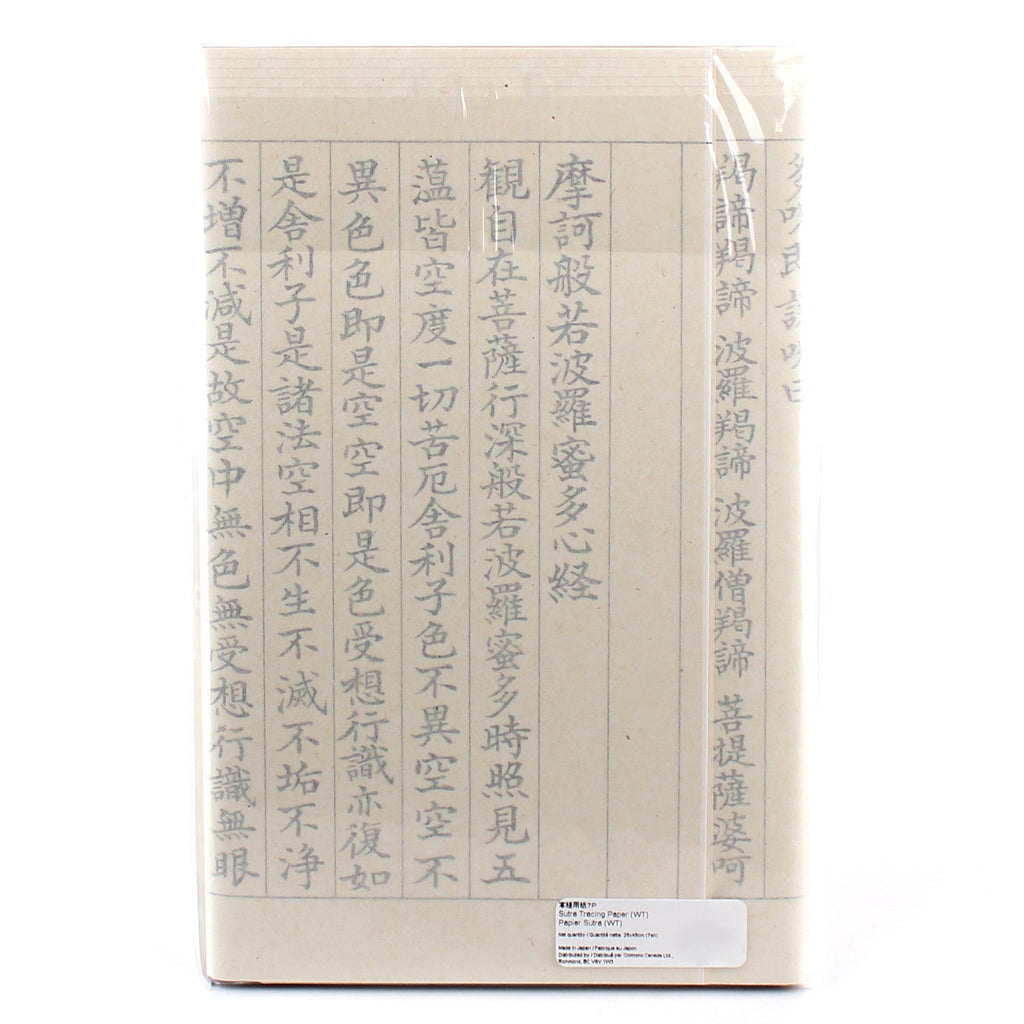 多呪即説呪曰
羯諦羯諦 波羅羯諦 波羅僧羯諦 菩提薩婆呵
摩訶般若波羅蜜多心経
観自在菩薩行深般若波羅蜜多時照見五
蘊皆空度一切苦厄舎利子色不異空空不
異色色即是空空即是色受想行識亦復如
是舎利子是諸法空相不生不滅不垢不浄
不増不減是故空中無色無受想行識無眼
用紙7P
Sutra Tracing Paper (WT)
Papier Sutra (WT)
Net quantity / Quantité nette: 25x45cm (7sh)
Made in Japan / Fabriqué au Japon
Distributed by / Distribué par Oomomo Canada Ltd.,
Richmond, BC V6V 1W3